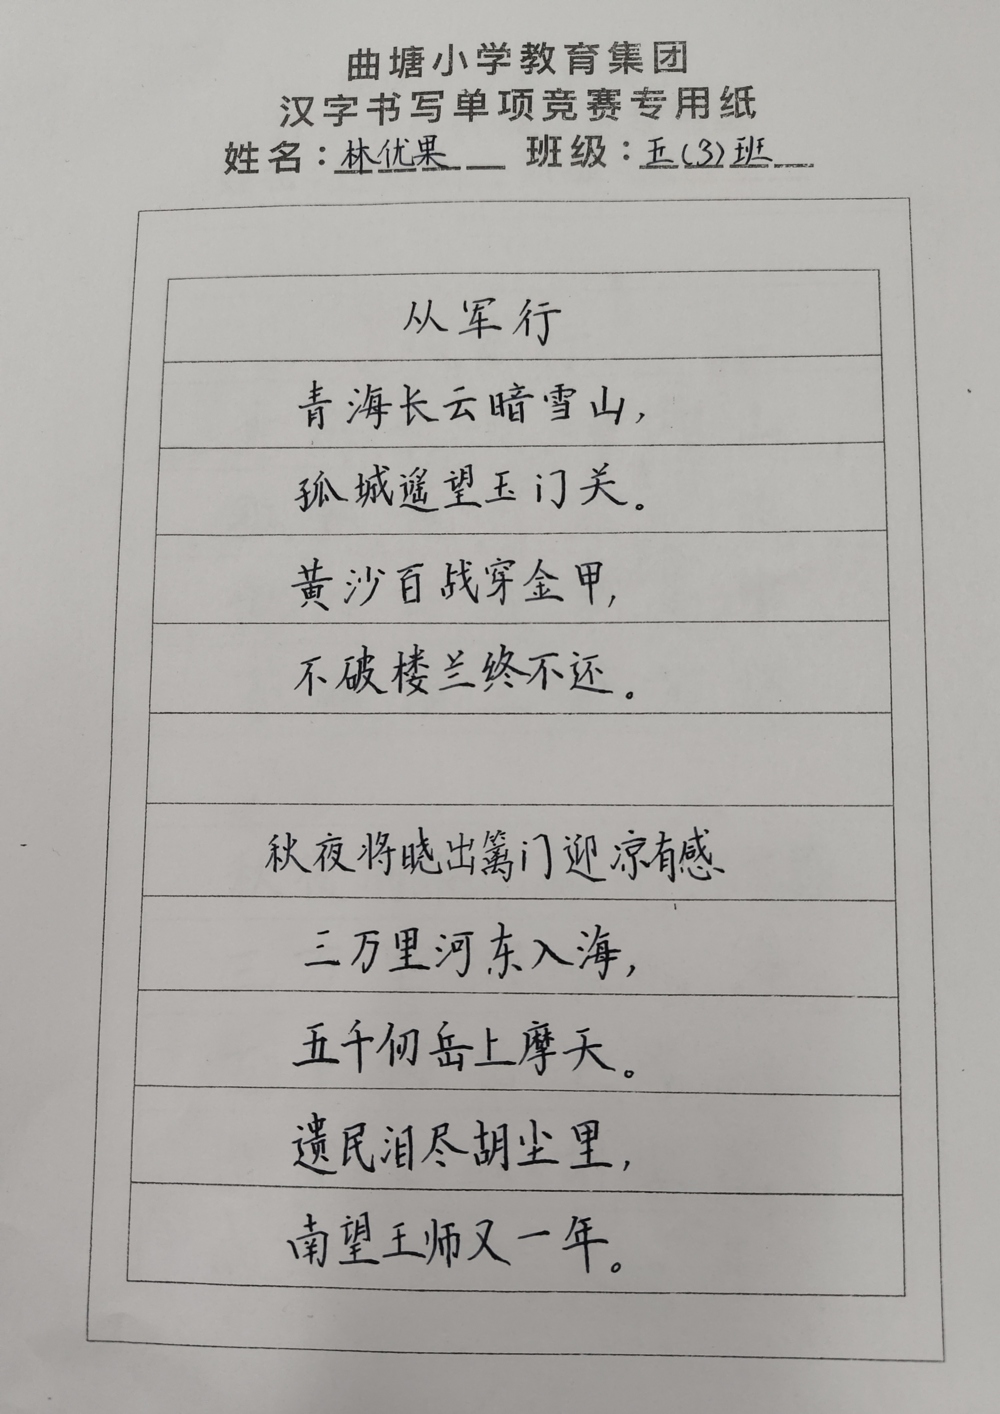 曲塘小学教育集团
汉字书写单项竞赛专用纸
姓名：林优果 班级：五(3)班
从军行
青海长云暗雪山，
孤城遥望玉门关。
黄沙百战穿金甲，
不破楼兰终不还。
秋夜将晓出篱门迎凉有感
三万里河东入海，
五千仞岳上摩天。
遗民泪尽胡尘里，
南望王师又一年。